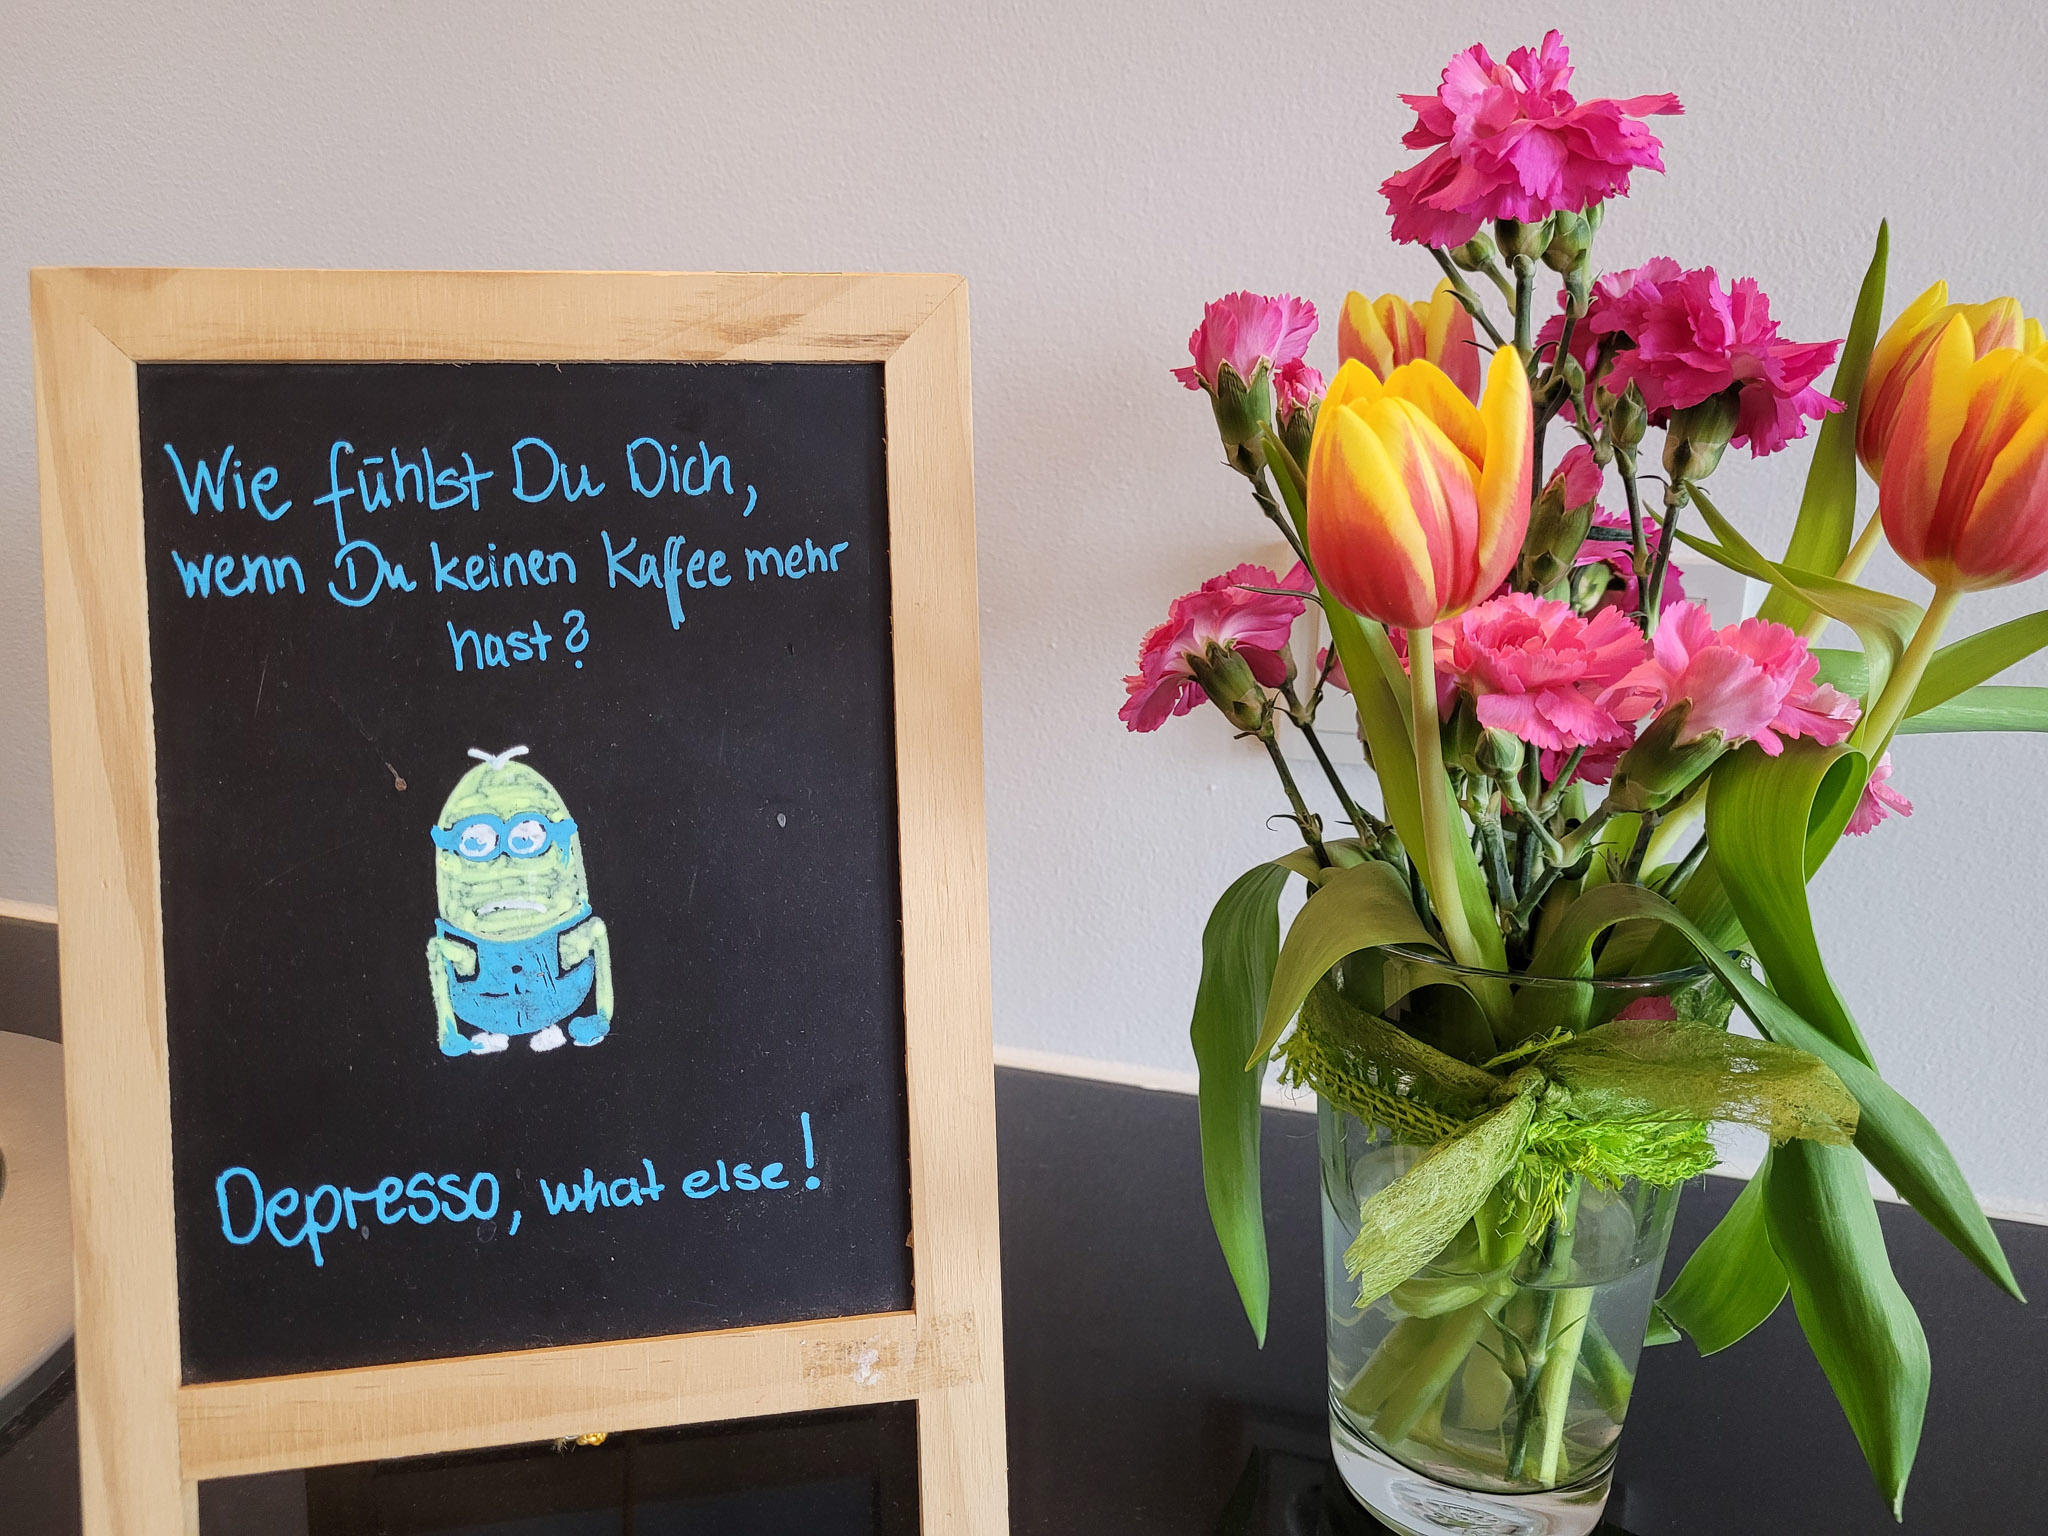 Wie fühlst Du Dich,
wenn Du keinen Kaffee mehr
hast?
Depresso, what else!